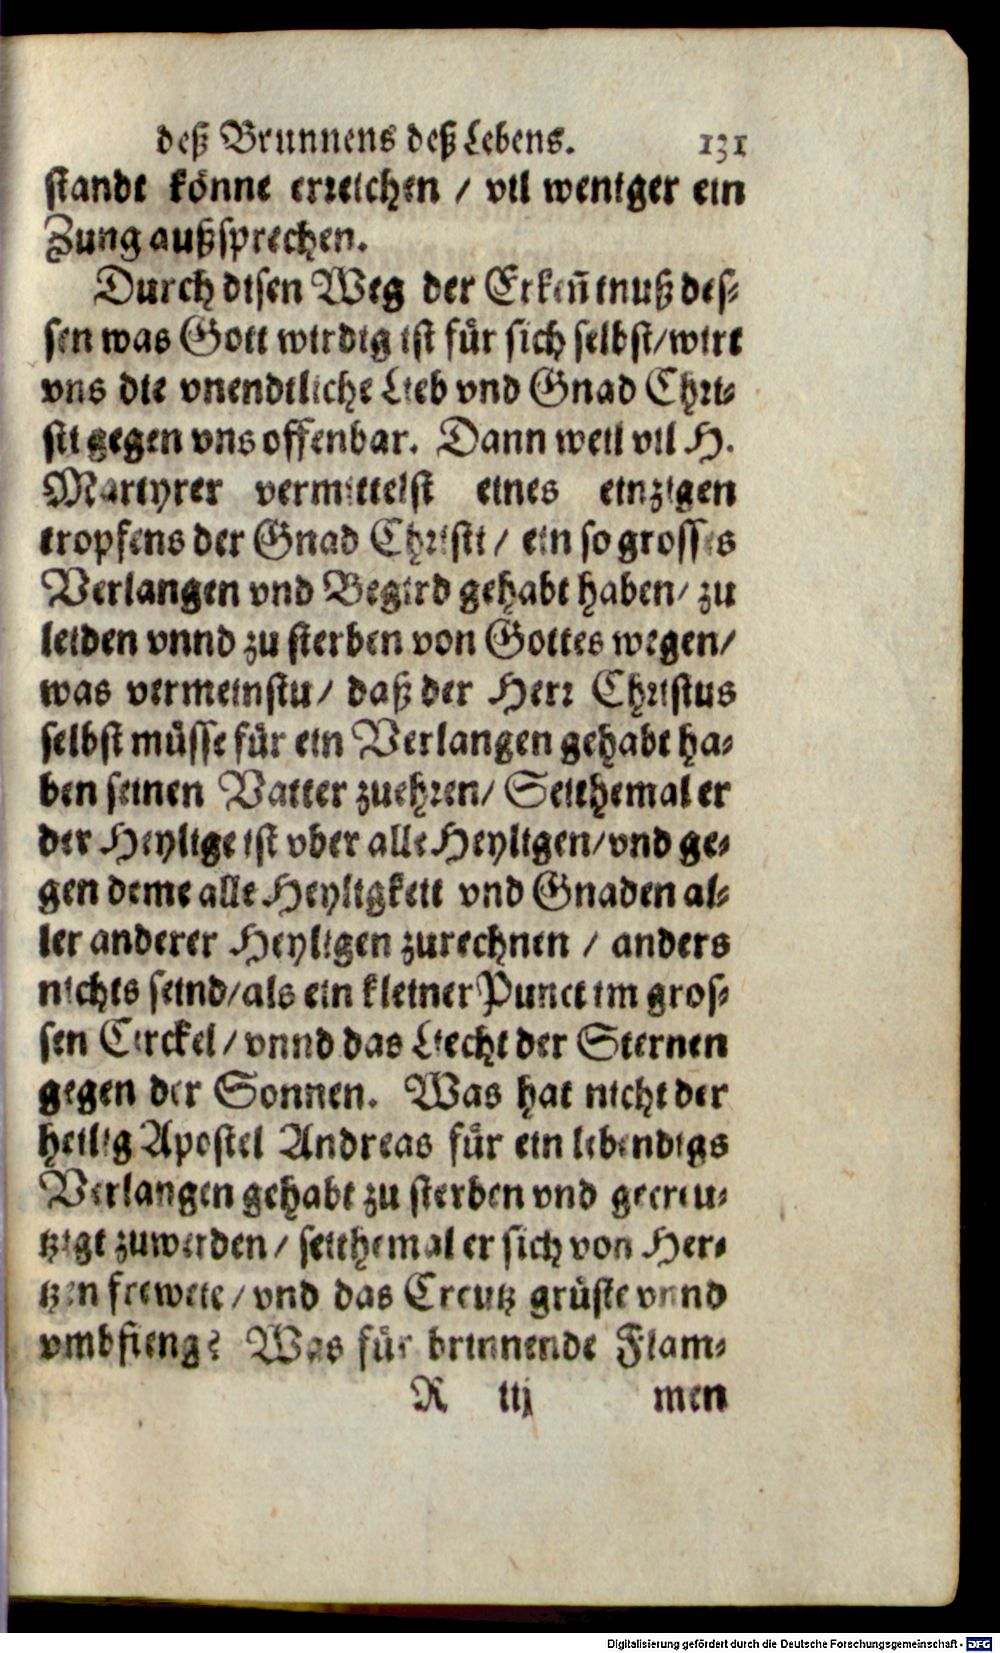 deß Brunnens deß Lebens. 131
standt könne erreichen / vil weniger ein
Zung außsprechen.
Durch disen Weg der Erkeñtnuß des-
sen was Gott wirdig ist für sich selbst/wirt
vns die vnendtliche Lieb vnd Gnad Chri-
sti gegen vns offenbar. Dann weil vil H.
Martyrer vermittelst eines einzigen
tropfens der Gnad Christi / ein so grosses
Verlangen vnd Begird gehabt haben/ zu
leiden vnnd zu sterben von Gottes wegen/
was vermeinstu/ daß der Herr Christus
selbst müsse für ein Verlangen gehabt ha-
ben seinen Vatter zuehren/ Seithemal er
der Heylige ist vber alle Heyligen/vnd ge-
gen deme alle Heyligkeit vnd Gnaden al-
ler anderer Heyligen zurechnen / anders
nichts seind/als ein kleiner Punct im gros-
sen Circkel/vnnd das Liecht der Sternen
gegen der Sonnen. Was hat nicht der
heilig Apostel Andreas für ein lebendigs
Verlangen gehabt zu sterben vnd gecreu-
tzigt zuwerden/ seithemal er sich von Her-
tzen frewete/vnd das Creutz grüste vnnd
vmbfieng? Was für brinnende Flam-
R iij men
Digitalisierung gefördert durch die Deutsche Forschungsgemeinschaft - DFG